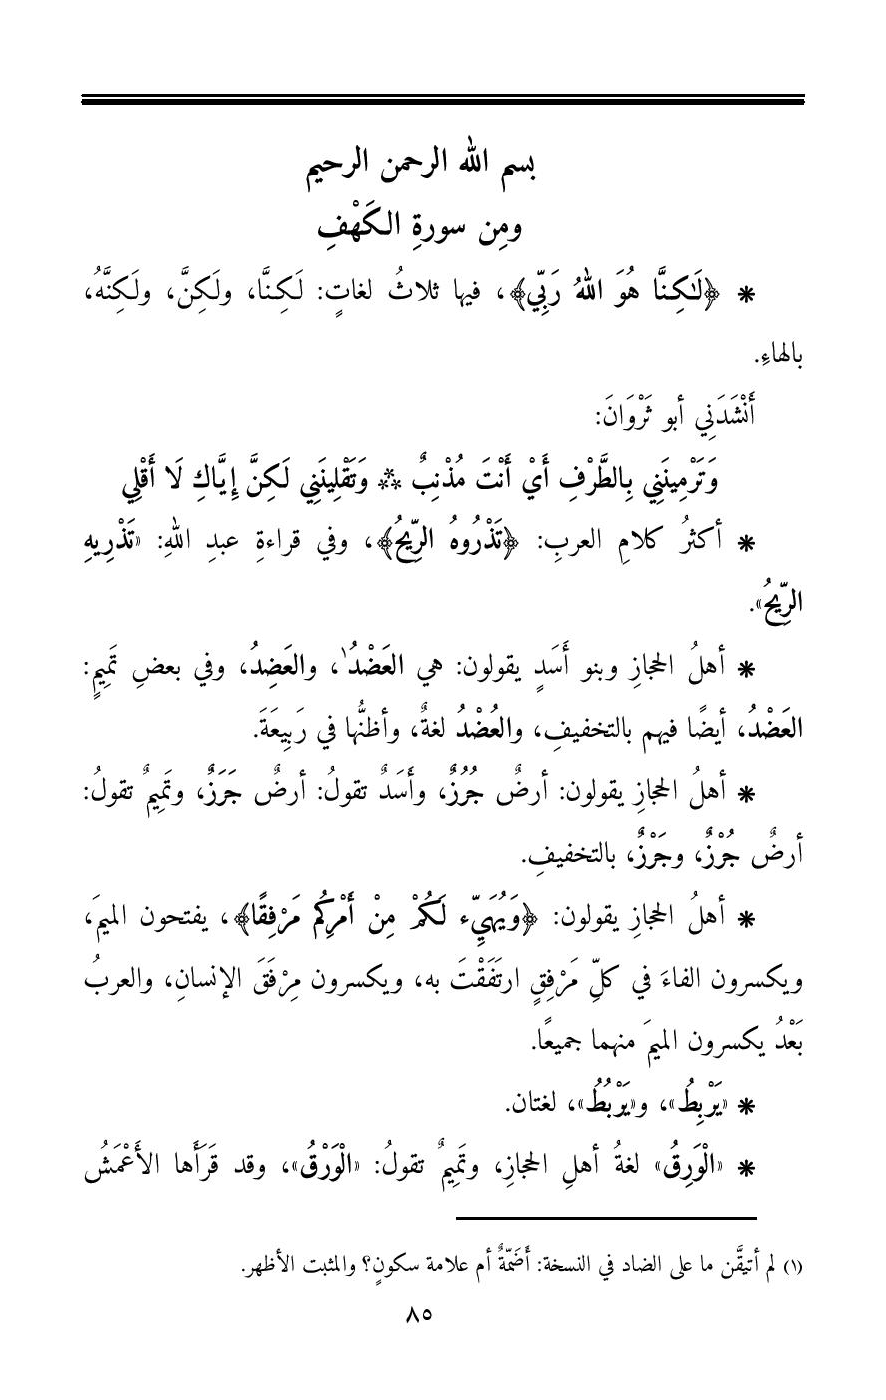 بسم الله الرحمن الرحيم
ومِن سورةِ الكَهْفِ
* ﴿لَٰكِنَّا هُوَ اللهُ رَبِّي﴾، فيها ثلاثُ لغاتٍ: لَكِنَّا، ولَكِنَّ، ولَكِنَّهُ،
بالهاءِ.
أَنْشَدَنِي أبو ثَرْوَانَ:
وَتَرْمِينَنِي بِالطَّرْفِ أَيْ أَنْتَ مُذْنِبٌ ** وَتَقْلِينَنِي لَكِنَّ إِيَّاكِ لَا أَقْلِي
* أكثرُ كلامِ العربِ: ﴿تَذْرُوهُ الرِّيحُ﴾، وفي قراءةِ عبدِ اللهِ: «تَذْرِيهِ
الرِّيحُ».
* أهلُ الحجازِ وبنو أَسَدٍ يقولون: هي العَضْدُ١، والعَضِدُ، وفي بعضِ تَمِيمٍ:
العَضْدُ، أيضًا فيهم بالتخفيفِ، والعُضْدُ لغةٌ، وأظنُّها في رَبِيعَةَ.
* أهلُ الحجازِ يقولون: أرضٌ جُرُزٌ، وأَسَدٌ تقولُ: أرضٌ جَرَزٌ، وتَمِيمٌ تقولُ:
أرضٌ جُرْزٌ، وجَرْزٌ، بالتخفيفِ.
* أهلُ الحجازِ يقولون: ﴿وَيُهَيِّء لَكُمْ مِنْ أَمْرِكُم مَرْفِقًا﴾، يفتحون الميمَ،
ويكسرون الفاءَ في كلِّ مَرْفِقٍ ارتَفَقْتَ به، ويكسرون مِرْفَقَ الإنسانِ، والعربُ
بَعْدُ يكسرون الميمَ منهما جميعًا.
* «يَرْبِطُ»، و«يَرْبُطُ»، لغتان.
* «الْوَرِقُ» لغةُ أهلِ الحجازِ، وتَمِيمٌ تقولُ: «الْوَرْقُ»، وقد قَرَأَها الأَعْمَشُ
(١) لم أتيقَّن ما على الضاد في النسخة: أَضَمّةٌ أم علامة سكونٍ؟ والمثبت الأظهر.
٨٥